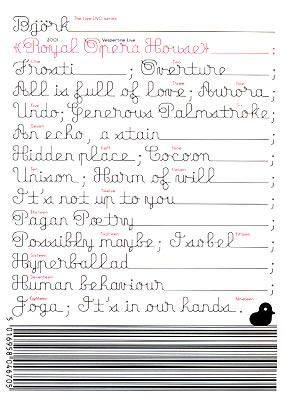 Björk The Live DVD series
2001 Vespertine Live
«Royal Opera House» ;
One Two
Frosti ; Overture ;
Three Four
All is full of love; Aurora;
Five Six
Undo; Generous Palmstroke;
Seven
An echo, a stain ;
Eight Nine
Hidden place; Cocoon ;
Ten Eleven
Unison; Harm of will ;
Twelve
It's not up to you ;
Thirteen
Pagan Poetry ;
Fourteen Fifteen
Possibly maybe; Isobel ;
Sixteen
Hyperballad ;
Seventeen
Human behaviour ;
Eighteen Nineteen
Joga; It's in our hands.
5 016958 046705